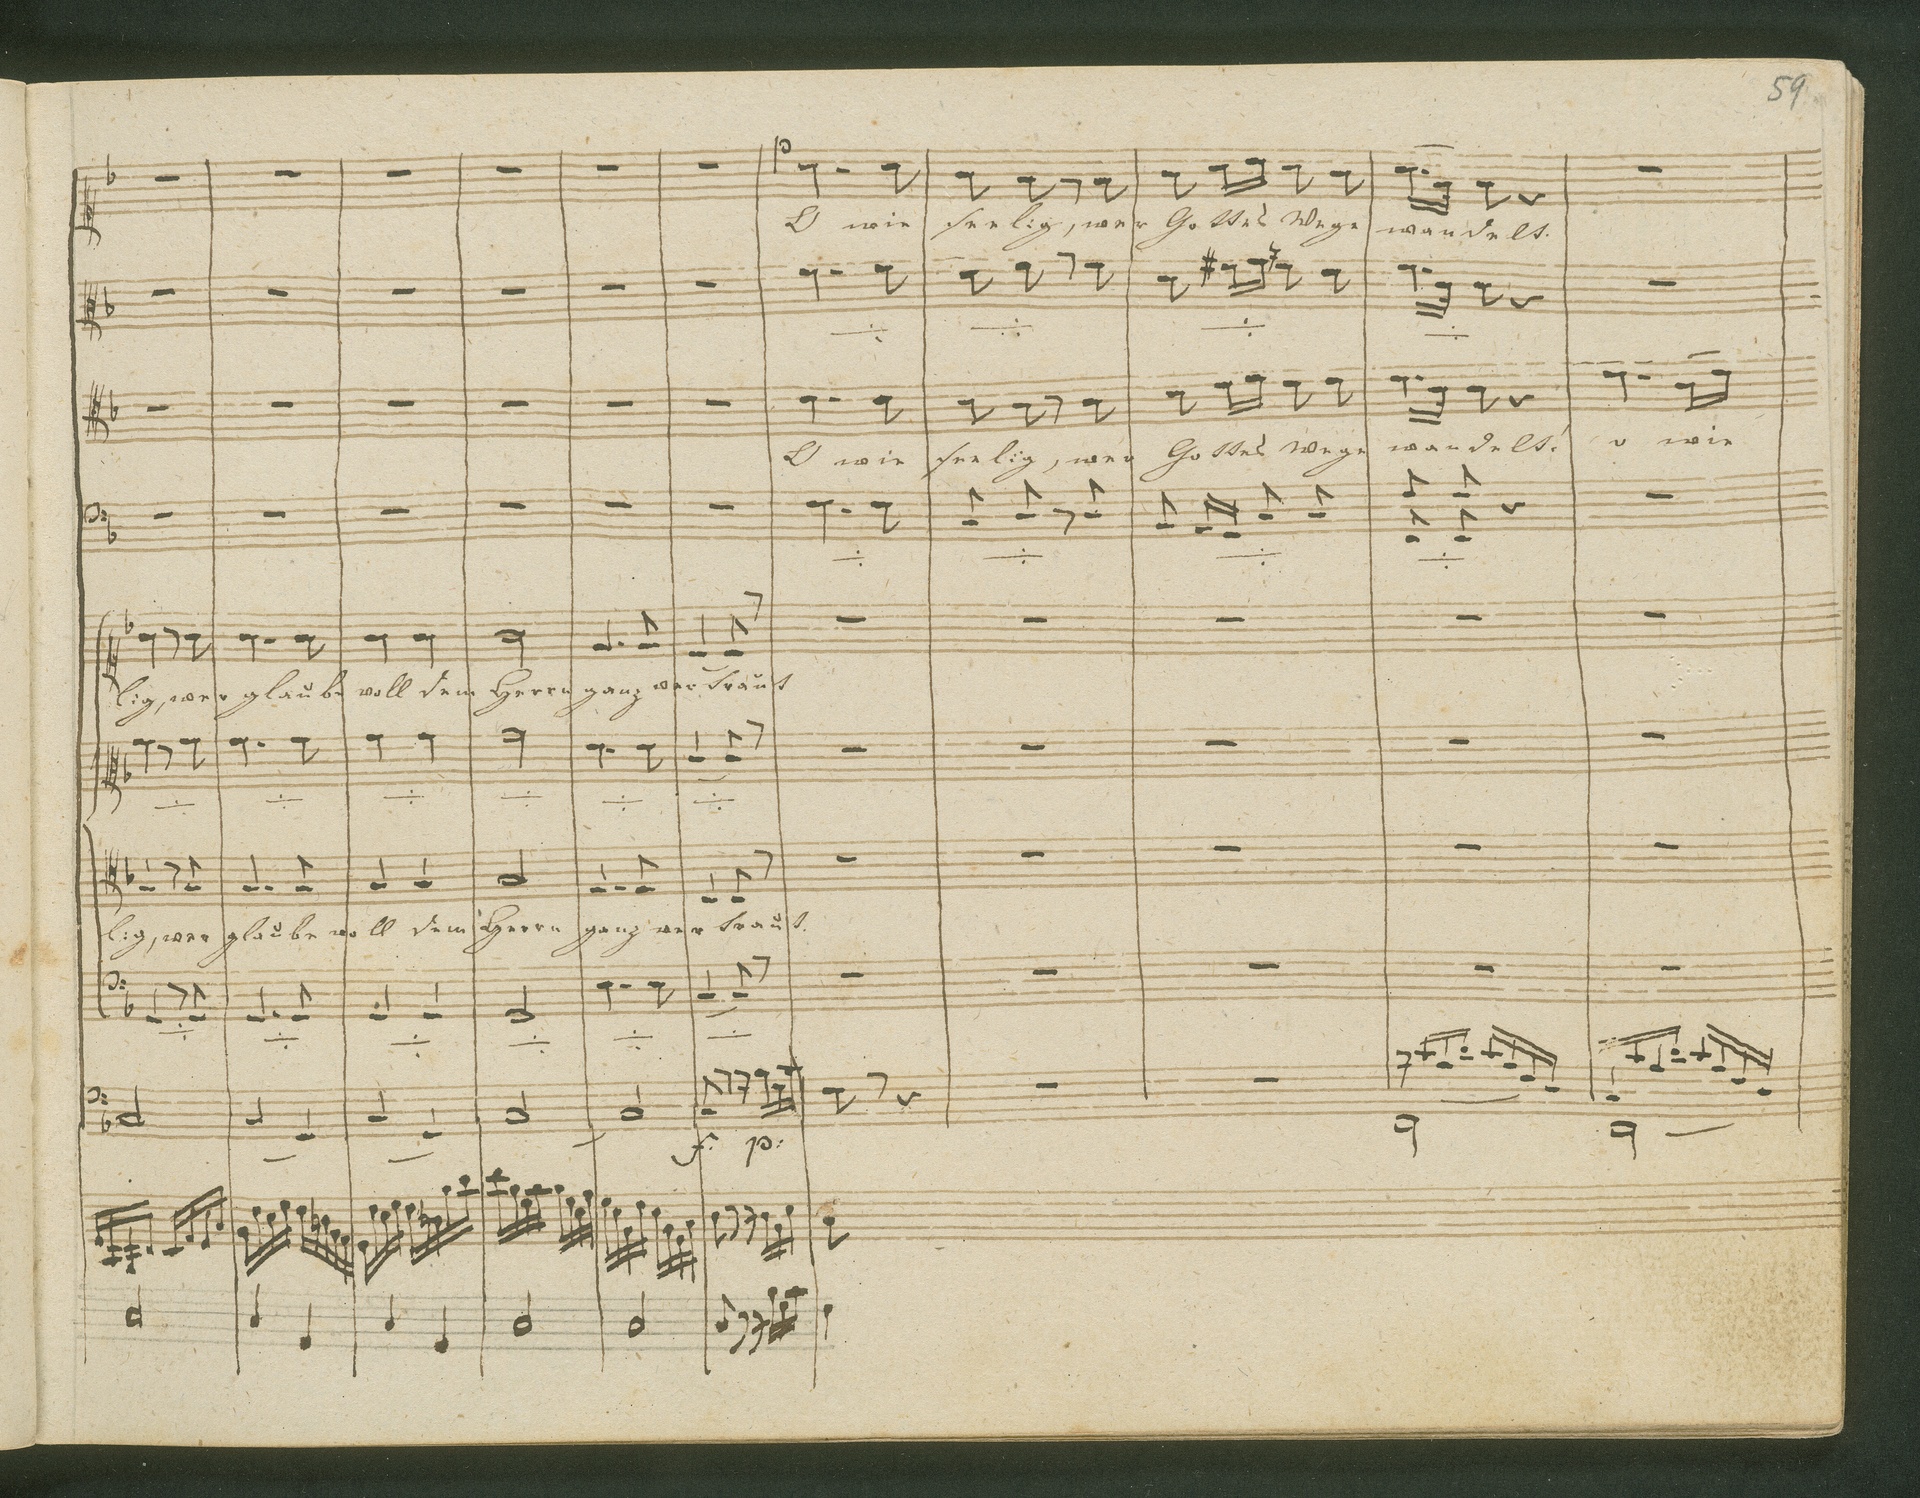 59
p
O wie seelig, wer Gottes Wege wandelt.
O wie seelig, wer Gottes Wege wandelt! o wie
lig, wer glaube voll dem Herrn ganz vertraut
lig, wer glaube voll dem Herrn ganz vertraut.
f: p: